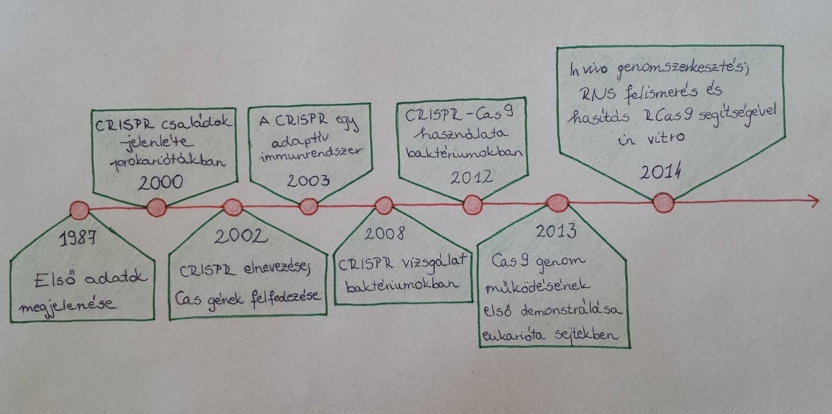 1987
Első adatok
megjelenése
CRISPR családok
jelenléte
prokariótákban
2000
2002
CRISPR elnevezése;
Cas gének felfedezése
A CRISPR egy
adaptív
immunrendszer
2003
2008
CRISPR vizsgálat
baktériumokban
CRISPR-Cas9
használata
baktériumokban
2012
2013
Cas9 genom
működésének
első demonstrálása
eukarióta sejtekben
In vivo genomszerkesztés;
RNS felismerés és
hasítás RCas9 segítségével
in vitro
2014